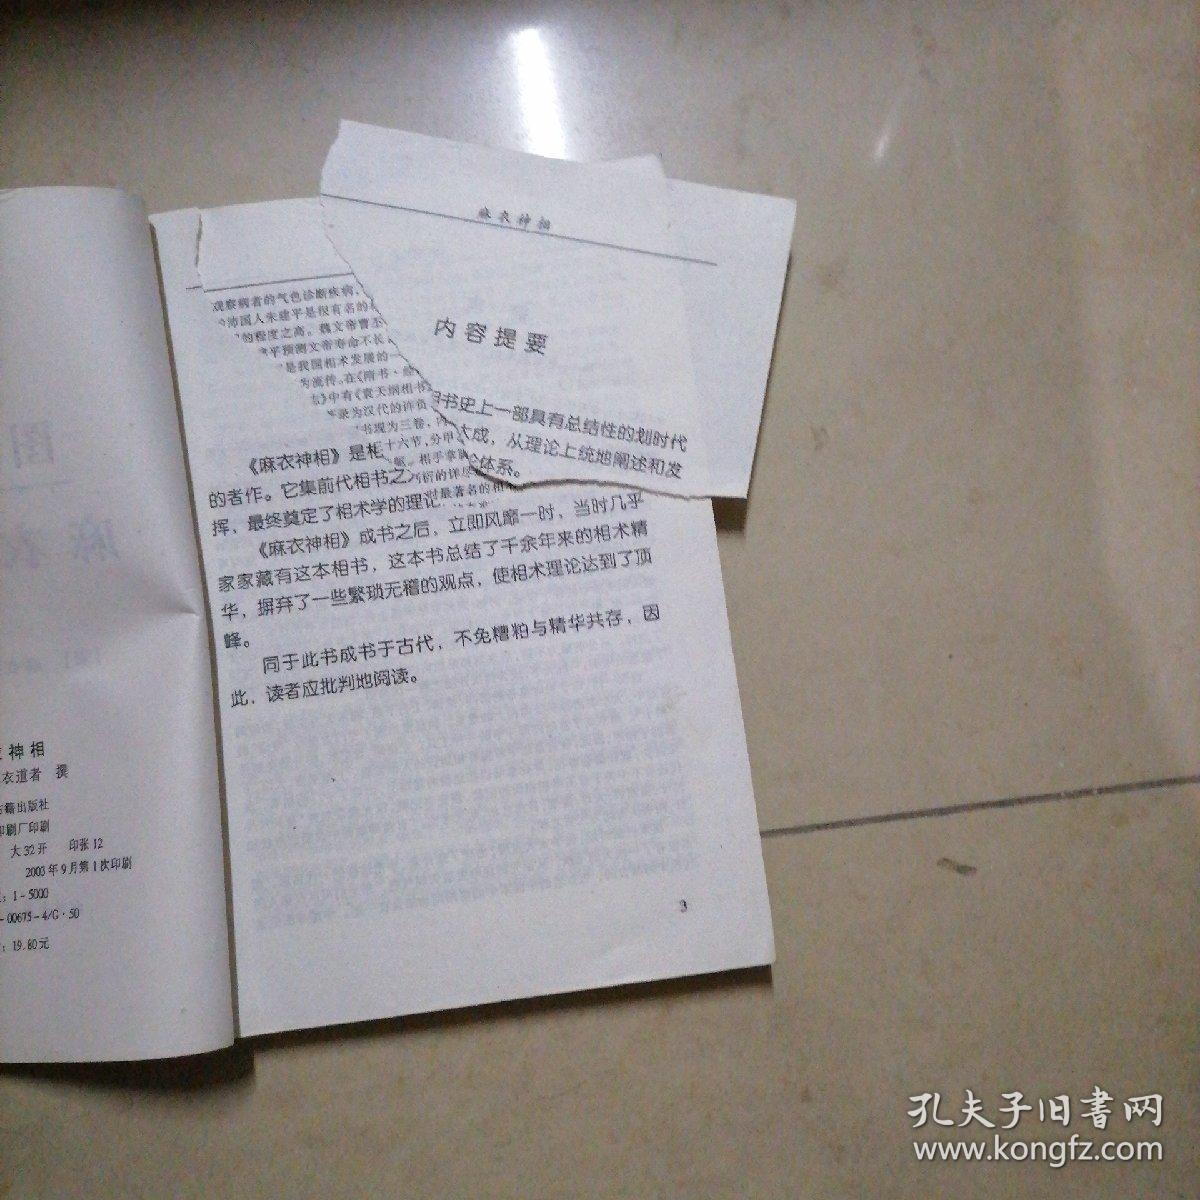 麻衣神相
内容提要
《麻衣神相》是相书史上一部具有总结性的划时代
的著作。它集前代相书之大成，从理论上统地阐述和发
挥，最终奠定了相术学的理论体系。
《麻衣神相》成书之后，立即风靡一时，当时几乎
家家藏有这本相书，这本书总结了千余年来的相术精
华，摒弃了一些繁琐无稽的观点，使相术理论达到了顶
峰。
同于此书成书于古代，不免糟粕与精华共存，因
此，读者应批判地阅读。
3
观察病者的气色诊断疾病，
沛国人朱建平是很有名的
的程度之高。魏文帝曹丕
平预测文帝寿命不长
是我国相术发展的一
为流传。在《隋书·经
中有《袁天纲相书
录为汉代的许负
书现为三卷，
十六节，分甲
相手掌
衍的详尽
最著名的相
图
麻衣
神相
衣道者 撰
古籍出版社
印刷厂印刷
大32开 印张12
2003年9月第1次印刷
：1-5000
-00675-4/G·50
：19.80元
孔夫子旧書网
www.kongfz.com